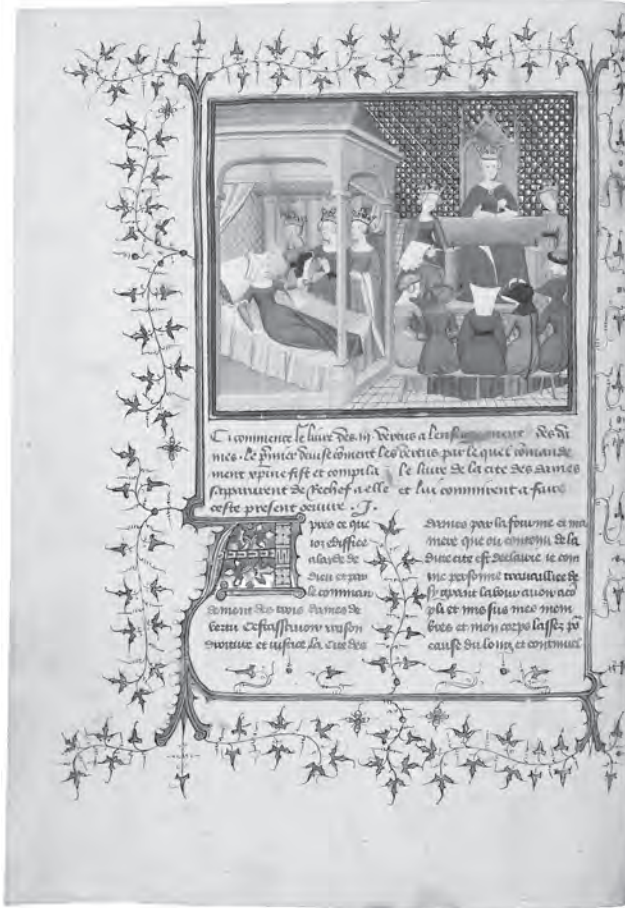 Ci commence le livre des .iij. vertus a lenseignement des da
mes. Le premier devise coment les vertus par le quel comande
ment xpine fist et compila le livre de la cite des dames
sapparurent de Rechef a elle et lui commirent a faire
ceste present oeuvre . J.
Apres ce que
ior ediffie
a layde de
dieu et par
le comman
dement des trois dames de
vertu Cestassavoir raison
droiture et iustice la cite des
dames par la fourme et ma
niere que ou contenu de la
dicte cite est declairie ie com
me personne travaillee de
si grant labour avoir aco
pli et mis sus mes mem
bres et mon corps lassez po
cause du long et continuel